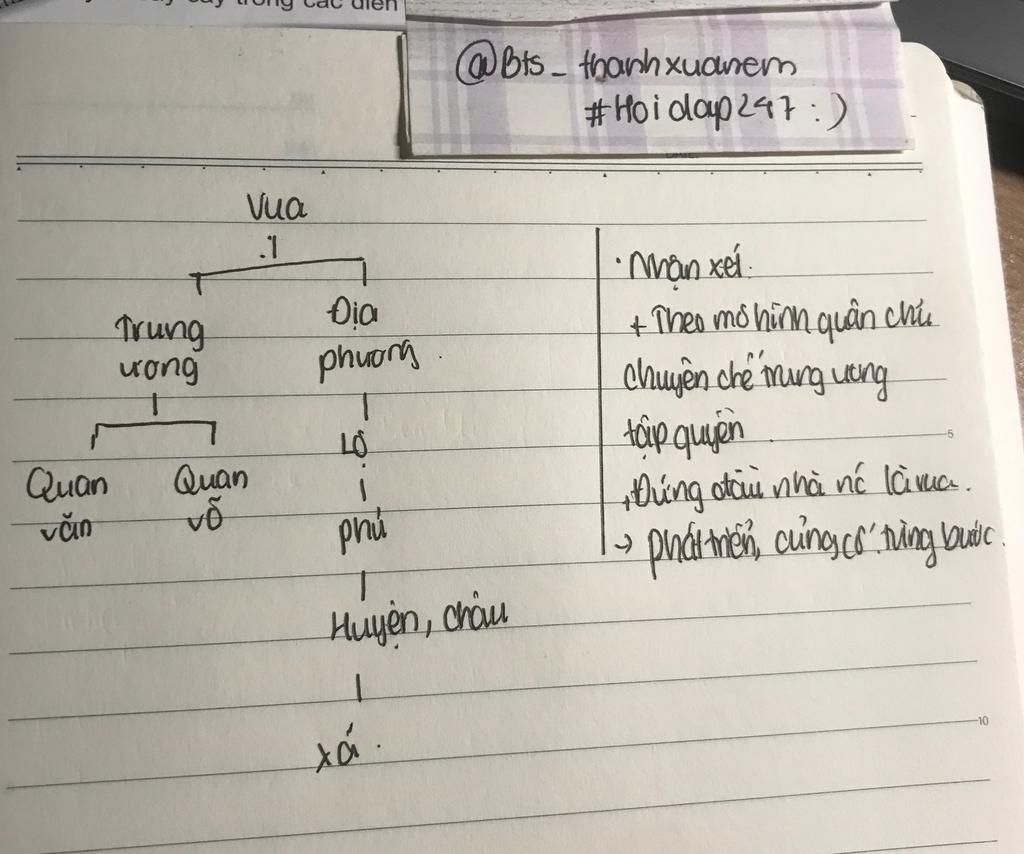 trong các diễn
@Bts_thanhxuanem
#Hoidap247 :)
Vua
Trung
ương
Địa
phương.
Quan
văn
Quan
võ
Lộ
phủ
Huyện, châu
xã.
· Nhận xét:
+ Theo mô hình quân chủ
chuyên chế trung ương
tập quyền.
, Đứng đầu nhà nc là vua.
→ phát triển, củng cố từng bước.
5
10